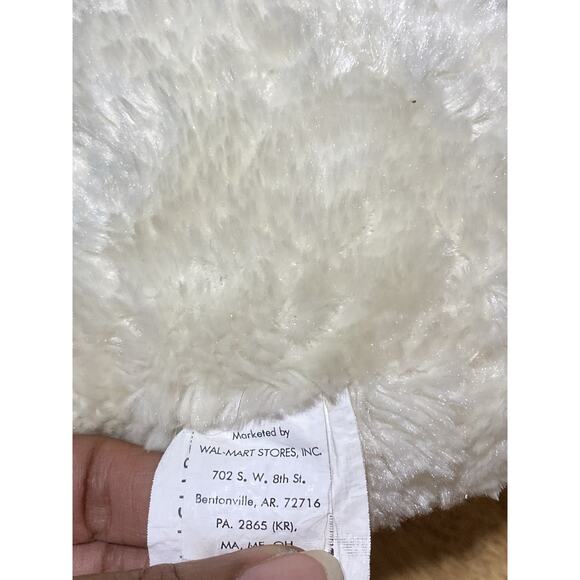 Marketed by
WAL-MART STORES, INC.
702 S. W. 8th St.
Bentonville, AR. 72716
PA. 2865 (KR),
MA, ME, OH